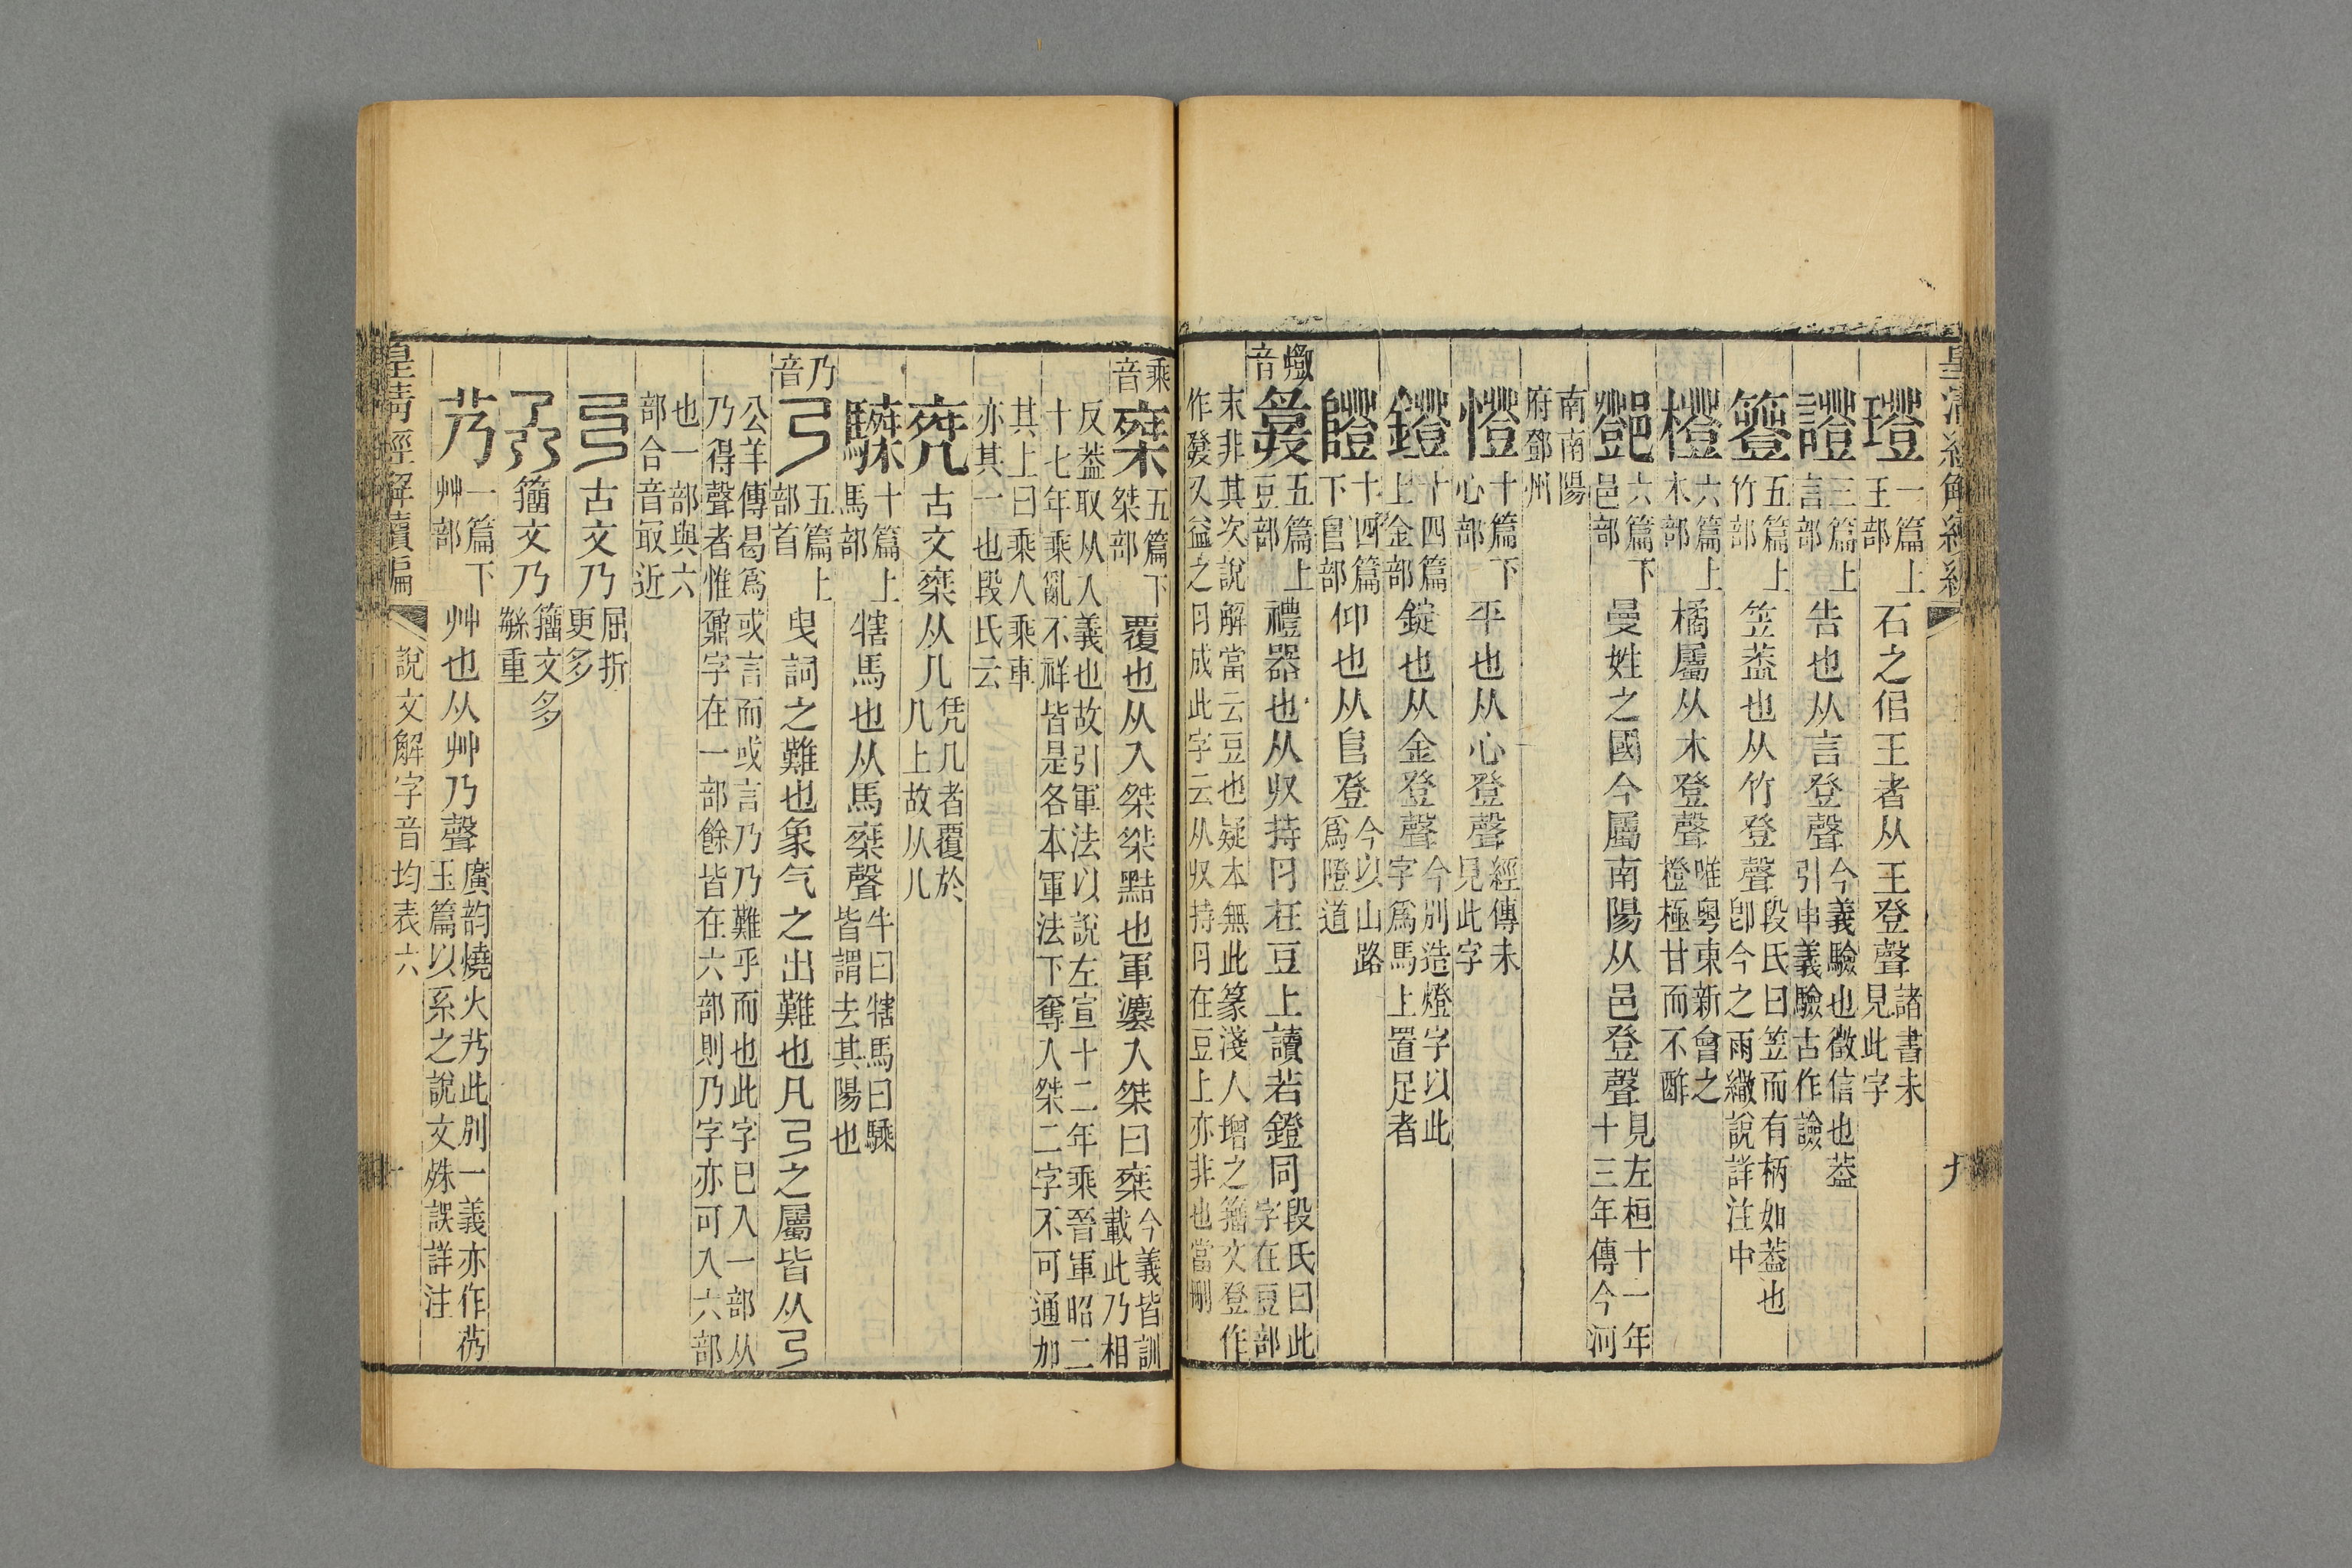 璒 一篇上王部 石之佀王者从王登聲 諸書未見此字
證 三篇上言部 告也从言登聲 今義驗也徵信也蓋引申義驗古作譣
簦 五篇上竹部 笠蓋也从竹登聲 段氏曰笠而有柄如蓋也卽今之雨繖說詳注中
橙 六篇上木部 橘屬从木登聲 唯粵東新會之橙極甘而不酢
鄧 六篇下邑部 曼姓之國今屬南陽从邑登聲 見左桓十一年十三年傳今河
南南陽府鄧州
憕 十篇下心部 平也从心登聲 經傳未見此字
鐙 十四篇上金部 錠也从金登聲 今別造燈字以此字爲馬上置足者
隥 十四篇下𨸏部 仰也从𨸏登 今以山路爲隥道
音 五篇上豆部 禮器也从収持肉在豆上讀若鐙同 段氏曰此字在豆部
末非其次說解當云豆也疑本無此篆淺人增之籀文登作作𤼷又益之肉成此字云从収持肉在豆上亦非也當刪
乘音 椉 五篇下桀部 覆也从入桀桀黠也軍灋入桀曰椉 今義皆訓載此乃相
反蓋取从入義也故引軍法以說左宣十二年乘晉軍昭二十七年乘亂不祥皆是各本軍法下奪入桀二字不可通加
其上曰乘人乘車亦其一也段氏云
古文椉从几 凭几者覆於几上故从几
騬 十篇上馬部 犗馬也从馬椉聲 牛曰犗馬曰騬皆謂去其陽也
乃音 𠄎 五篇上部首 曳詞之難也象气之出難也凡𠄎之屬皆从𠄎
公羊傳曷爲或言而或言乃乃難乎而也此字已入一部从乃得聲者惟鼐字在一部餘皆在六部則乃字亦可入六部
也一部與六部合音㝡近
古文乃 屈折更多
籀文乃 籀文多緐重
艿 一篇下艸部 艸也从艸乃聲 廣韵燒火艿此別一義亦作芿玉篇以系之說文殊誤詳注
皇清經解續編 說文解字音均表六
皇清經解續編 九